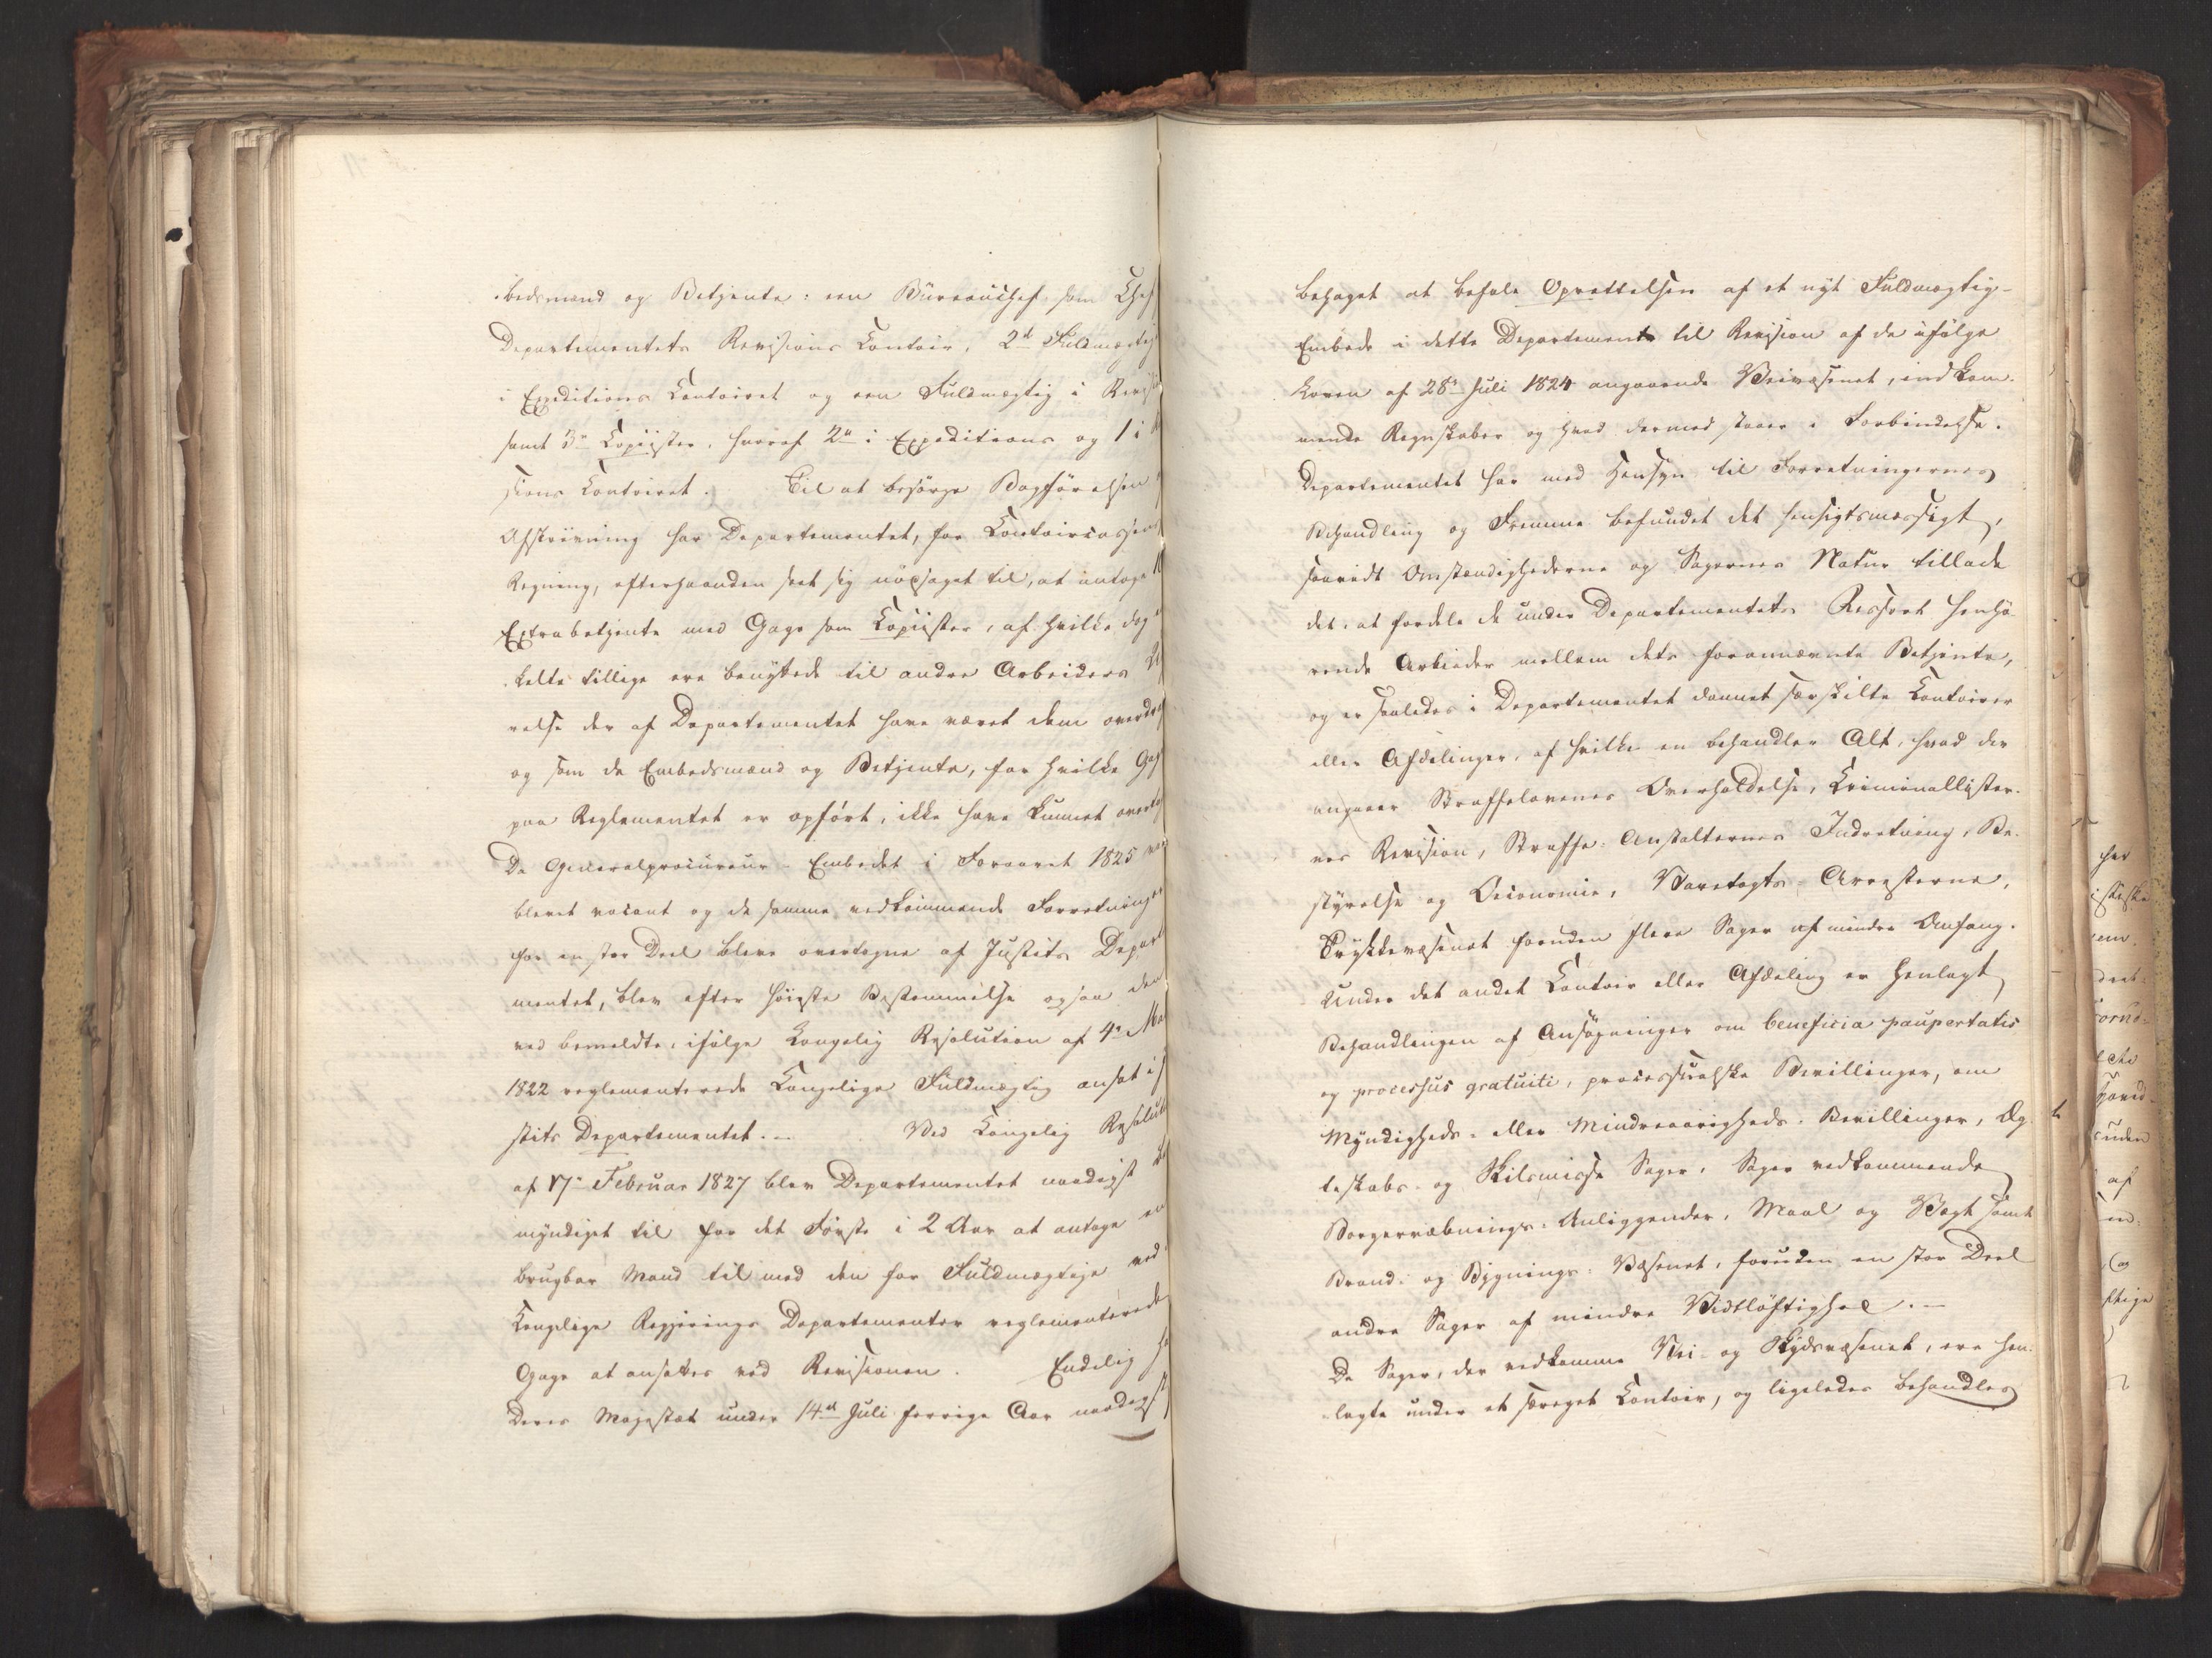 bedsmænd og Betjente: een Büreauchef som Chef
Departementets Revisions Contoir, 2de Fuldmægtig
i Expeditions Contoiret og een Fuldmægtig i Revisi
samt 3de Copiister, hvoraf 2de i Expeditions og 1 i
sions Contoiret. Til at besørge Bogførelsen
Afskrivning har Departementet, for Contoircassens
Regning, efterhaanden seet sig nødsaget til, at antage 10
Extrabetjente med Gage som Copiister, af hvilke dog
kelte tillige ere benyttede til andre Arbeiders
relse der af Departementet have været dem overdrag
og som de Embedsmænd og Betjente, for hvilke Gage
paa Reglementet er opført, ikke have kunnet overtage
Da Generalprocureur-Embedet i Foraaret 1825 var
blevet vacant og de samme vedkommende Forretninger
for en stor Deel bleve overtagne af Justits Depart
mentet, blev efter høieste Bestemmelse ogsaa den
ved bemeldte, ifølge Kongelig Resolution af 4de Ma
1822 reglementerede Kongelige Fuldmægtig ansat i
stits Departementet. - Ved Kongelig Resoluti
af 17de Februar 1827 blev Departementet naadigst be
myndiget til for det Første i 2 Aar at antage en
brugbar Mand til med den for Fuldmægtige ved
Kongelige Regjerings Departementer reglementerede
Gage at ansættes ved Revisionen. Endelig ha
Deres Majestæt under 14de Juli forrige Aar naadigst
behaget at befale Oprettelsen af et nyt Fuldmægtig-
Embede i dette Departement til Revision af de ifølge
Loven af 28de Juli 1824 angaaende Veivæsenet, indkom-
mende Regnskaber og hvad dermed staaer i Forbindelse.
Departementet har med Hensyn til Forretningernes
Behandling og Fremme befundet det hensigtsmæssigt,
saavidt Omstændighederne og Sagernes Natur tillade
det, at fordele de under Departementets Ressort henhø-
rende Arbeider mellem dets forannævnte Betjente,
og er saaledes i Departementet dannet særskilte Contoirer
eller Afdelinger, af hvilke en behandler Alt, hvad der
angaaer Straffelovenes Overholdelse, Criminallister-
nes Revision, Straffe-Anstalternes Indretning, Be-
styrelse og Oeconomie, Varetægts Arresterne,
Trykkevæsenet foruden flere Sager af mindre Omfang.
Under det andet Contoir eller Afdeling er henlagt
Behandlingen af Ansøgninger om beneficia paupertatis
og processus gratuiti, processualske Bevillinger, om
Myndigheds- eller Mindreaarigheds-Bevillinger, Æg-
teskabs- og Skilsmisse Sager, Sager vedkommende
Borgervæbnings-Anliggender, Maal og Vægt samt
Brand- og Bygnings-Væsenet, foruden en stor Deel
andre Sager af mindre Vidtløftighed. -
De Sager, der vedkomme Vei- og Skydsvæsenet, ere hen-
lagte under et særeget Contoir, og ligeledes behandles